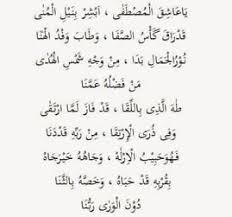 يَاعَاشِقَ الْمُصْطَفَى ، اَبْشِرْ بِنَيْلِ الْمُنَى
قَدْرَاقَ كَأْسُ الصَّفَا ، وَطَابَ وَفْدُ الْهَنَا
نُوْرُالْجَمَالِ بَدَا ، مِنْ وَجْهِ شَمْسِ الْهُدَى
مَنْ فَضْلُهُ عَمَّنَا
طٰهَ الَّذِى بِاللِّقَا ، قَدْ فَازَ لَمَّا ارْتَقَى
وَفِى ذُرَى الْاِرْتِقَا ، مِنْ رَبِّهِ قَدْدَنَا
فَهُوَحَبِيْبُ الْاِلٰهْ ، وَجَاهُهُ خَيْرُجَاهْ
بِقُرْبِهِ قَدْ حَبَاهْ ، وَخَصَّهُ بِالثَّنَا
دُوْنَ الْوَرٰى رَبُّنَا